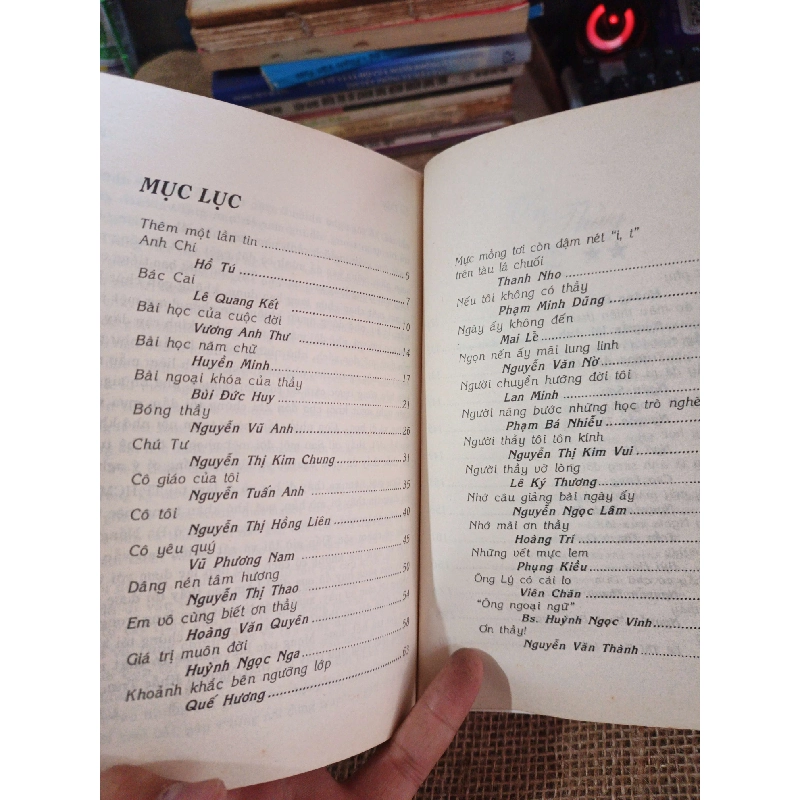 MỤC LỤC
Thêm một lần tin
Anh Chi ........ 5
Hồ Tú
Bác Cai ........ 7
Lê Quang Kết
Bài học của cuộc đời ........ 10
Vương Anh Thư
Bài học năm chữ ........ 14
Huyền Minh ........ 17
Bài ngoại khóa của thầy
Bùi Đức Huy ........ 21
Bóng thầy
Nguyễn Vũ Anh ........ 26
Chú Tư
Nguyễn Thị Kim Chung ........ 31
Cô giáo của tôi
Nguyễn Tuấn Anh ........ 35
Cô tôi
Nguyễn Thị Hồng Liên ........ 40
Cô yêu quý
Vũ Phương Nam ........ 45
Dâng nén tâm hương
Nguyễn Thị Thao ........ 50
Em vô cùng biết ơn thầy
Hoàng Văn Quyên ........ 54
Giá trị muôn đời
Huỳnh Ngọc Nga ........ 58
Khoảnh khắc bên ngưỡng lớp
Quế Hương ........ 62
Mực mồng tơi còn đậm nét “i, t”
trên tàu lá chuối
Thanh Nho
Nếu tôi không có thầy
Phạm Minh Dũng
Ngày ấy không đến
Mai Lê
Ngọn nến ấy mãi lung linh
Nguyễn Văn Nờ
Người chuyển hướng đời tôi
Lan Minh
Người nâng bước những học trò nghè
Phạm Bá Nhiễu
Người thầy tôi tôn kính
Nguyễn Thị Kim Vui
Người thầy vỡ lòng
Lê Ký Thương
Nhớ câu giảng bài ngày ấy
Nguyễn Ngọc Lâm
Nhớ mãi ơn thầy
Hoàng Trí
Những vết mực lem
Phụng Kiều
Ông Lý có cái lo
Viên Chăn
“Ông ngoại ngữ”
Bs. Huỳnh Ngọc Vinh
Ơn thầy!
Nguyễn Văn Thành